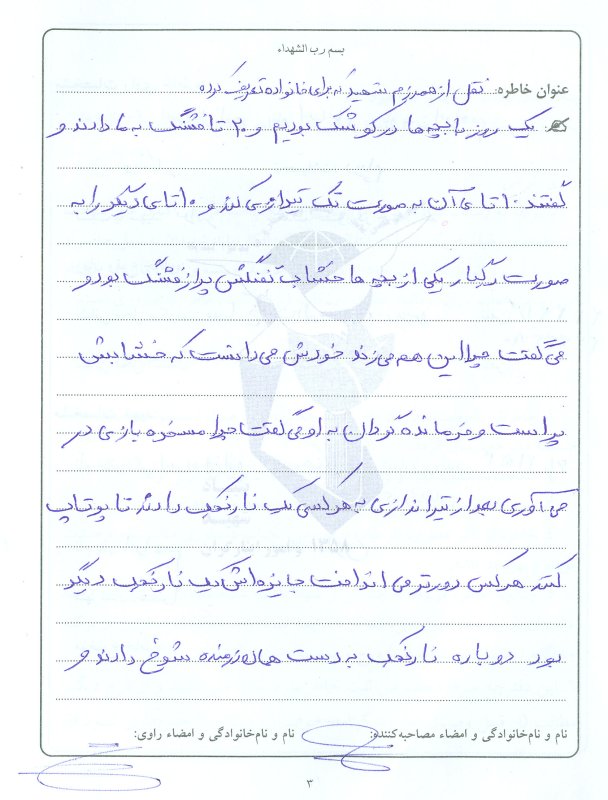 بسم رب الشهداء
عنوان خاطره: نقل از همرزم شهید که برای خانواده تعریف کرده
یک روز با بچه ها در کوشک بودیم و ۲۰ تا فشنگ به ما دادند و
گفتند ۱۰ تای آن به صورت تک تیراندازی کنند و ۱۰ تای دیگر را به
صورت رگبار یکی از بچه ها خشاب تفنگش پر از فشنگ بود و
می گفت چرا این هم می زند خودش می دانست که خشابش
پر است و فرمانده گردان به او می گفت چرا مسخره بازی در
می آوری بعد از تیراندازی به هر کسی یک نارنجک دادند تا پرتاب
کنند هر کس دورتر می انداخت جایزه اش یک نارنجک دیگر
بود دوباره نارنجک به دست همان رزمنده شوخ دادند و
نام و نام‌خانوادگی و امضاء مصاحبه‌کننده:
نام و نام‌خانوادگی و امضاء راوی:
۳